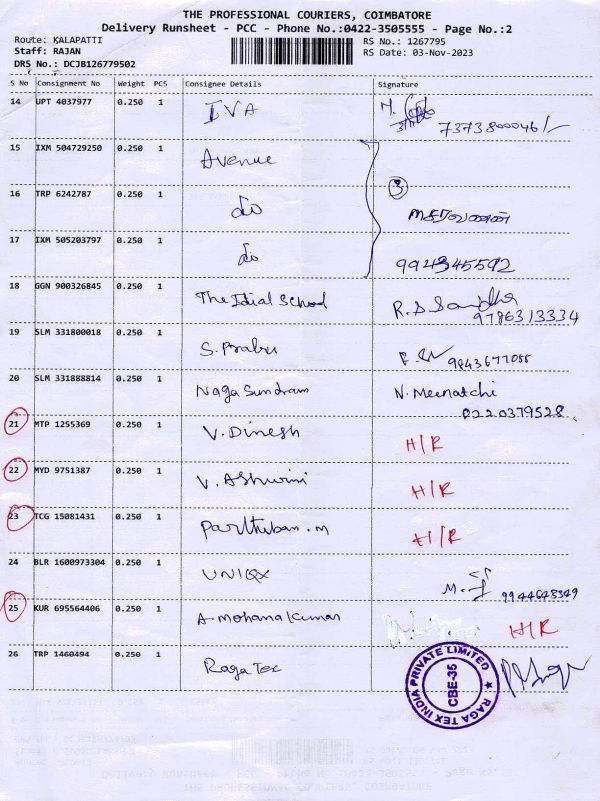 THE PROFESSIONAL COURIERS, COIMBATORE
Delivery Runsheet - PCC - Phone No.:0422-3505555 - Page No.:2
Route: KALAPATTI
Staff: RAJAN
DRS No.: DCJB126779502
RS No.: 1267795
RS Date: 03-Nov-2023
S No Consignment No Weight PCS Consignee Details Signature
14 UPT 4037977 0.250 1 IVA
7373800046/-
15 IXM 504729250 0.250 1 Avenue
16 TRP 6242787 0.250 1 do 3 சரவணன்
17 IXM 505203797 0.250 1 do 9943345592
18 GGN 900326845 0.250 1 The Idial School R.S Sandha
9786313334
19 SLM 331800018 0.250 1 S. Prabu 9843677055
20 SLM 331888814 0.250 1 Naga Sundram N. Meenatchi
8220379528
21 MTP 1255369 0.250 1 V. Dinesh H/R
22 MYD 9751387 0.250 1 V. Ashwini H/R
23 TCG 15081431 0.250 1 Parthiban . M H/R
24 BLR 1600973304 0.250 1 UNIQX 9944648349
25 KUR 695564406 0.250 1 A. Mohana Kumar H/R
26 TRP 1460494 0.250 1 Raga Tex
RAGA TEX INDIA PRIVATE LIMITED
CBE-35